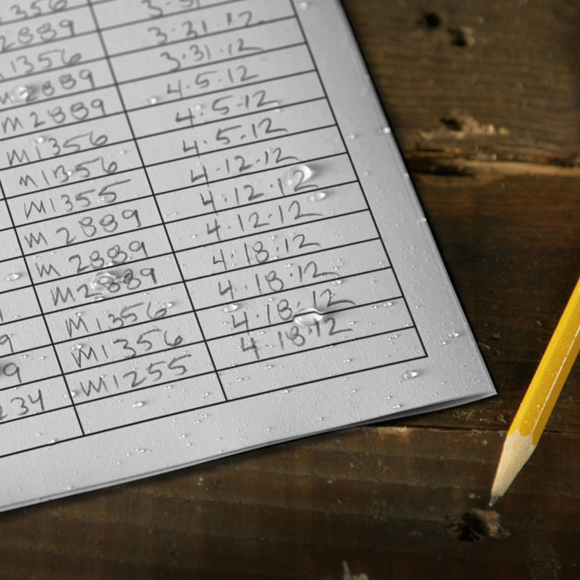 1356
2889 3-31
1356 3·31·12
m2889 3·31·12
m2889 4·5·12
m1356 4·5·12
m1356 4·5·12
m1355 4·12·12
m2889 4·12·12
m2889 4·12·12
m2889 4·18·12
9 m1356 4·18·12
9 m1356 4·18·12
234 m1255 4·18·12